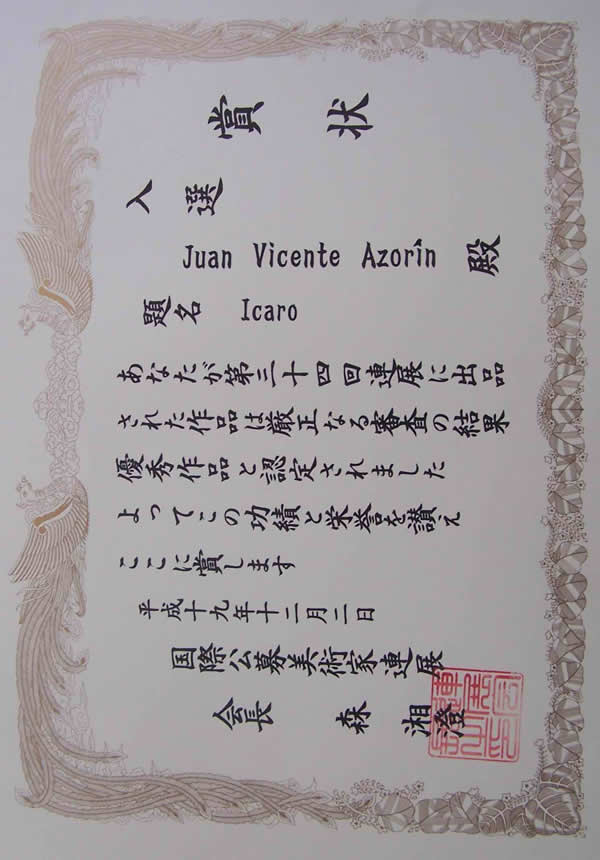 賞状
入選
Juan Vicente Azorín 殿
題名 Icaro
あなたが第三十四回連展に出品
された作品は厳正なる審査の結果
優秀作品と認定されました
よってこの功績と栄誉を讃え
ここに賞します
平成十九年十二月二日
国際公募美術家連展
会長 森 湘澄